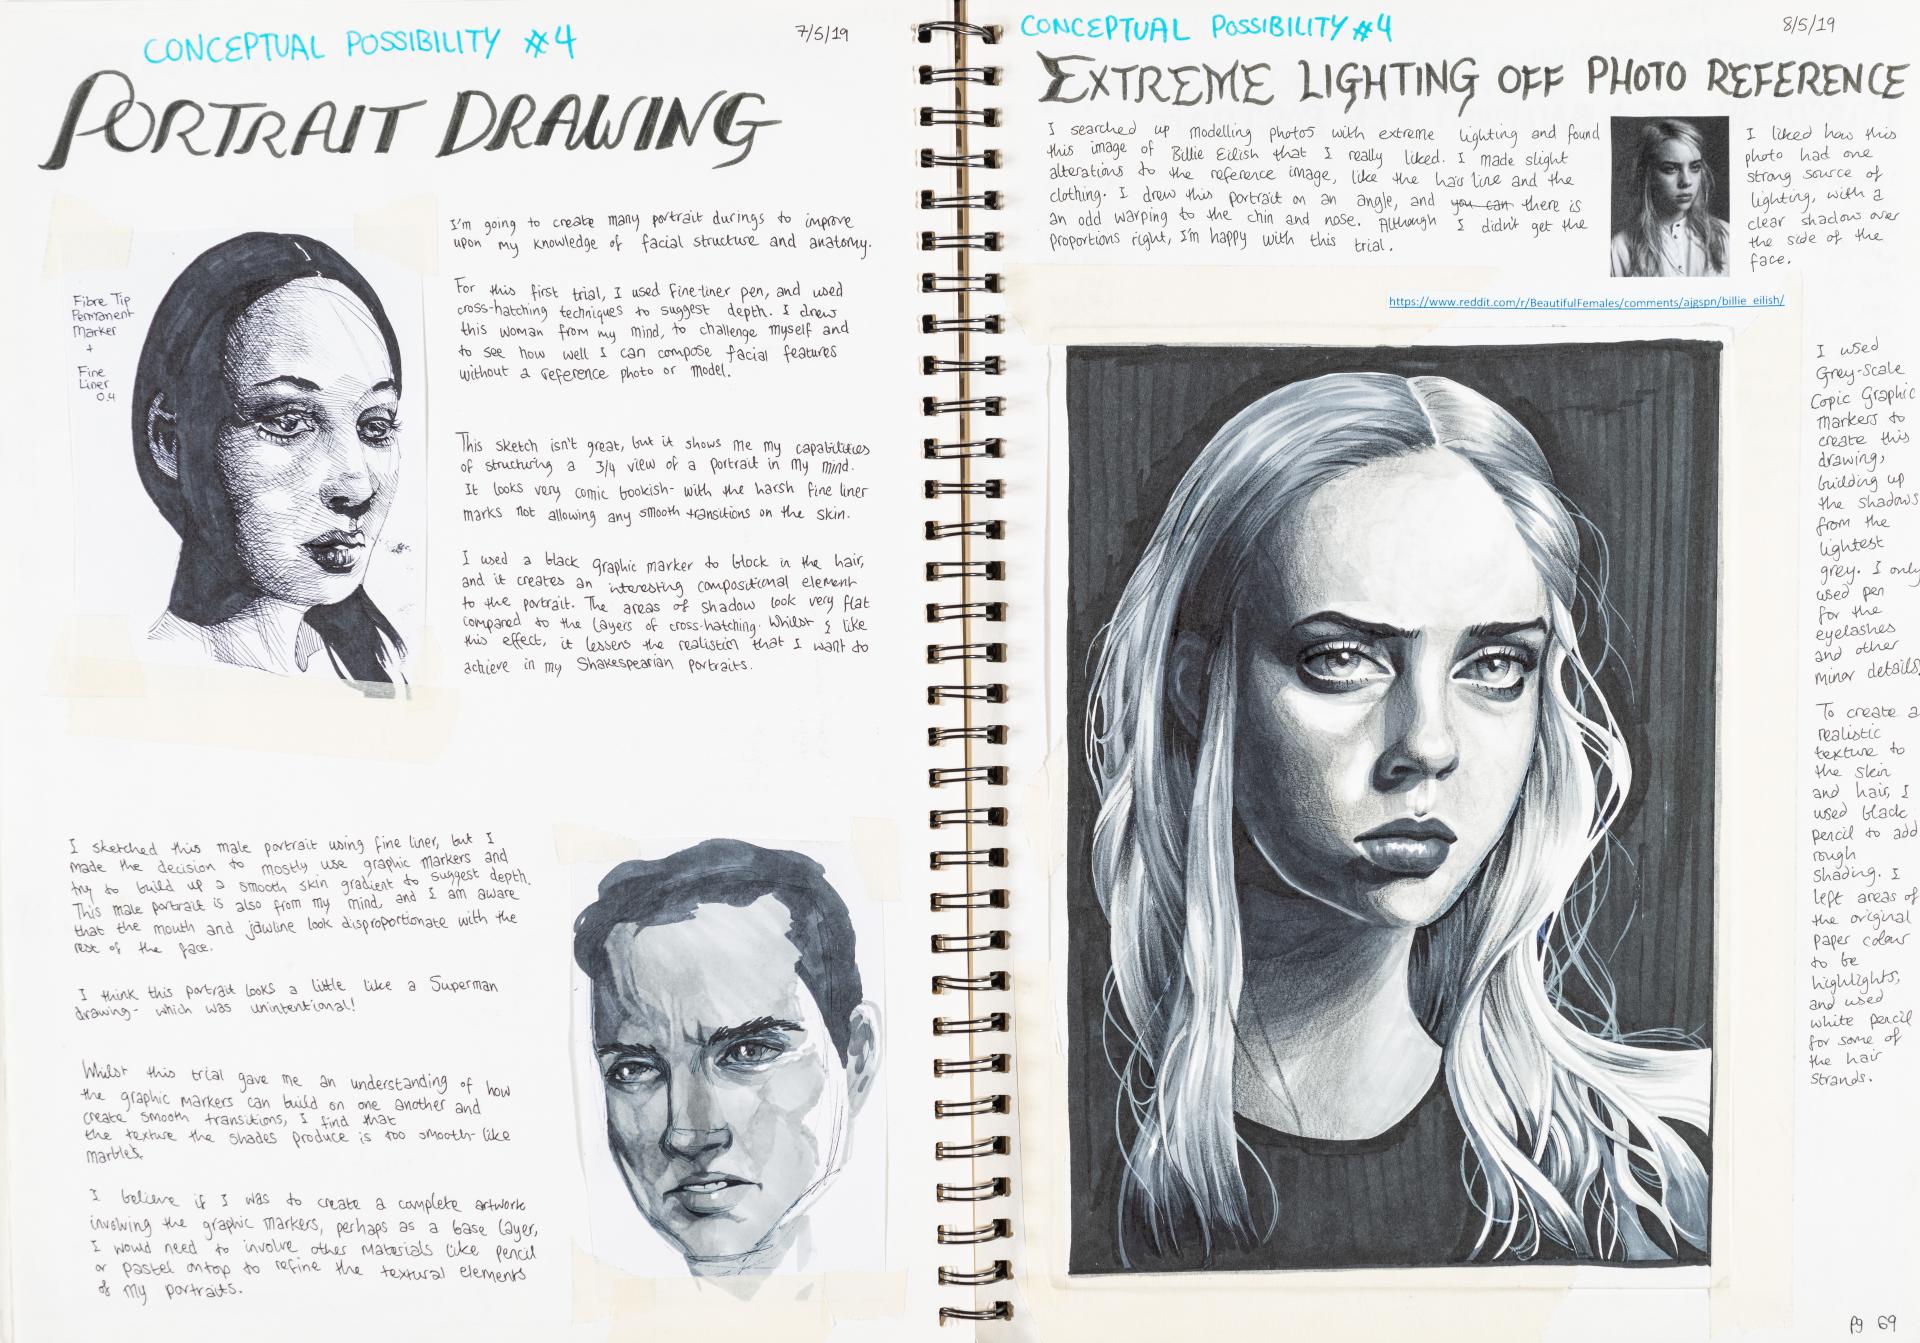 CONCEPTUAL POSSIBILITY #4
7/5/19
PORTRAIT DRAWING
I'm going to create many portrait durings to improve
upon my knowledge of facial structure and anatomy.
Fibre Tip
Permanent
Marker
+
Fine
Liner
0.4
For this first trial, I used fine-liner pen, and used
cross-hatching techniques to suggest depth. I drew
this woman from my mind, to challenge myself and
to see how well I can compose facial features
without a reference photo or model.
This sketch isn't great, but it shows me my capabilities
of structuring a 3/4 view of a portrait in my mind.
It looks very comic bookish- with the harsh fine liner
marks not allowing any smooth transitions on the skin.
I used a black graphic marker to block in the hair,
and it creates an interesting compositional element
to the portrait. The areas of shadow look very flat
compared to the layers of cross-hatching. Whilst I like
this effect, it lessens the realistion that I want to
achieve in my Shakespearian portraits.
I sketched this male portrait using fine liner, but I
made the decision to mostly use graphic markers and
try to build up a smooth skin gradient to suggest depth.
This male portrait is also from my mind, and I am aware
that the mouth and jawline look disproportionate with the
rest of the face.
I think this portrait looks a little like a Superman
drawing- which was unintentional!
Whilst this trial gave me an understanding of how
the graphic markers can build on one another and
create smooth transitions, I find that
the texture the shades produce is too smooth-like
marbles.
I believe if I was to create a complete artwork
involving the graphic markers, perhaps as a base layer,
I would need to involve other materials like pencil
or pastel ontop to refine the textural elements
of my portraits.
CONCEPTUAL POSSIBILITY #4
8/5/19
EXTREME LIGHTING OFF PHOTO REFERENCE
I searched up modelling photos with extreme lighting and found
this image of Billie Eilish that I really liked. I made slight
alterations to the reference image, like the hair line and the
clothing. I drew this portrait on an angle, and you can there is
an odd warping to the chin and nose. Although I didn't get the
proportions right, I'm happy with this trial.
I liked how this
photo had one
strong source of
lighting, with a
clear shadow over
the side of the
face.
https://www.reddit.com/r/BeautifulFemales/comments/ajgspn/billie_eilish/
I used
Grey-Scale
Copic Graphic
markers to
create this
drawing,
building up
the shadows
from the
lightest
grey. I only
used pen
for the
eyelashes
and other
minor details.
To create a
realistic
texture to
the skin
and hair, I
used black
pencil to add
rough
shading. I
left areas of
the original
paper colour
to be
highlights,
and used
white pencil
for some of
the hair
strands.
pg 69